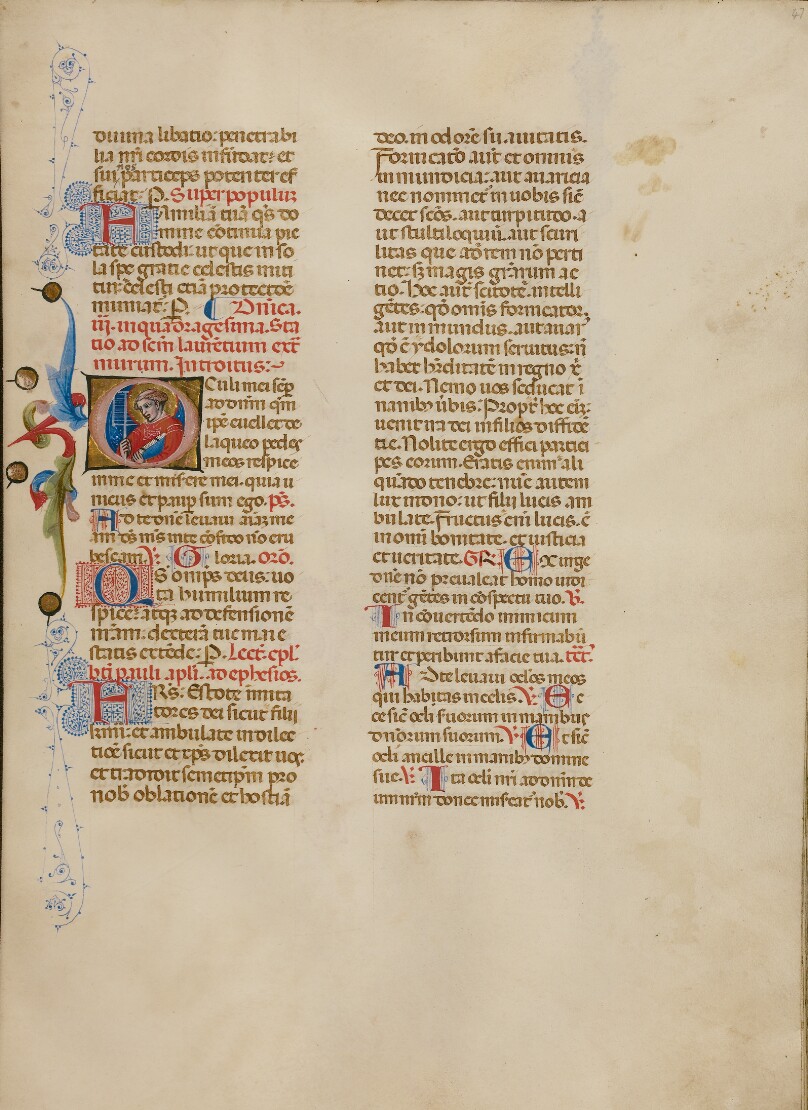 47
diuina libatio: penetrabi
lia nr̄i cordis infūdat: et
sui participes potenter ef
ficiat. P. Super populuȝ
Familiā tuā q̄s do
mine cōtinua pie
tate custodi: ut que in so
la spe gratie celestis inni
titur: celesti etiā protectōe
muniat. P. Dn̄ica.
iii. in quadragesima. Sta
tio ad scm̄ laurētium ext̄
murum. Introitus:
Oculi mei sēp
ad dn̄m q̄m
ip̄e euellet de
laqueo pedes
meos respice
in me et miserere mei. quia u
nicus et paup sum ego. ps̄.
Ad te dn̄e leuaui aīaȝ me
am ds̄ ms̄ in te cōfido nō eru
bescam. V. Gloria. Orō.
Qs̄ om̄ps deus: uo
ta humilium re
spice: atq; ad defensionē
n̄r̄am: dexterā tue maie
statis extēde. P. Lect̄. epl̄.
bt̄i pauli apl̄i. ad ephesios.
Frs̄: Estote imita
tores dei sicut filii
kīmi: et ambulate in dilec
tiōe sicut et xp̄s dilexit uos:
et tradidit semetip̄m pro
nob̄ oblationē et hostiā
deo. in odorē suauitatis.
Fornicatō aūt et omnis
inmundicia: aut auaricia
nec nominet̄ in uobis sic̄
decet sc̄os. aut turpitudo. a
ut stultiloquiū. aut scuri
litas que ad rem nō perti
net: s; magis gr̄arum ac
tio. Hoc aūt scitote. intelli
gētes. qd̄ om̄is fornicator,
aut inmundus. aut auar᾽
qd̄ ē ydolorum seruitus: n̄
habet hr̄ditatē in regno x̄
et dei. Nemo uos seducat i
nanib; ūbis: Propt̄ hec eī:
uenit ira dei in filios diffidē
tie. Nolite ergo effici partici
pes eorum. Eratis enim ali
quādo tenebre: nūc autem
lux in dn̄o: ut filii lucis am
bulate. Fructus eni lucis. ē
in om̄i bonitate. et iusticia
et ueritate. GR̄. Exurge
dn̄e nō preualeat homo iudi
cent᾽ gētes in cōspectu tuo. V.
In cōuertēdo inimicum
meum retrorsum infirmabū
tur et peribunt a facie tua. tct̄.
Ad te leuaui oclos meos
qui habitas in celis. V. Ec
ce sic̄ ocl̄i seruorum in manibus
dn̄orum suorum. V. Et sic̄
ocl̄i ancille in manib; domine
sue. V. Ita ocl̄i nr̄i ad dn̄m de
um nr̄m donec misereat᾽ nob̄. V.